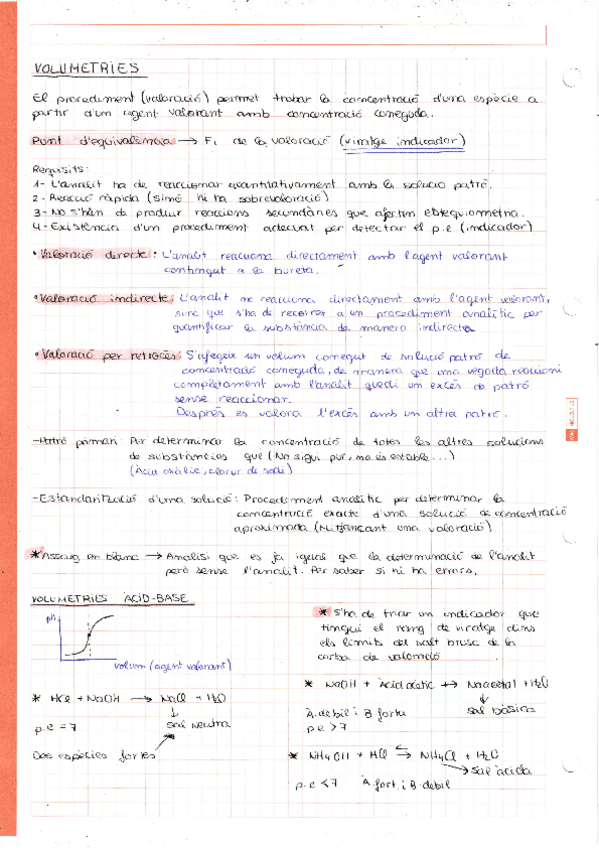 VOLUMETRIES
El procediment (valoració) permet trobar la concentració d'una espècie a
partir d'un agent valorant amb concentració coneguda.
Punt d'equivalència → Fi de la valoració (viratge indicador)
Requisits:
1- L'analit ha de reaccionar quantitativament amb la solució patró.
2- Reacció ràpida (sinó hi ha sobrevaloració)
3- No s'han de produir reaccions secundàries que afectin estequiometria.
4- Existència d'un procediment adequat per detectar el p.e (indicador)
• Valoració directe: L'analit reacciona directament amb l'agent valorant
contingut a la bureta.
• Valoració indirecte: L'analit no reacciona directament amb l'agent valorant,
sinó que s'ha de recórrer a un procediment analític per
quantificar la substància de manera indirecta
• Valoració per retrocés: S'afegeix un volum conegut de solució patró de
concentració coneguda, de manera que una vegada reaccioni
completament amb l'analit quedi un excés de patró
sense reaccionar.
Després es valora l'excés amb un altre patró.
- Patró primari: Per determinar la concentració de totes les altres solucions
de substàncies que (No sigui pur, no és estable...)
(Àcid oxàlic, clorur de sodi)
- Estandarització d'una solució: Procediment analític per determinar la
concentració exacte d'una solució de concentració
aproximada (Mitjançant una valoració)
* Assaig en blanc → Anàlisi que es fa igual que la determinació de l'analit
però sense l'analit. Per saber si hi ha errors.
VOLUMETRIES ÀCID-BASE
pH
volum (agent valorant)
* HCl + NaOH → NaCl + H2O
↓
sal neutra
p.e = 7
Dos espècies fortes
* S'ha de triar un indicador que
tingui el rang de viratge dins
els límits del salt brusc de la
corba de valoració
* NaOH + Àcid acètic ↔ Na acetat + H2O
↓
sal bàsica
À. dèbil i B forta
p.e > 7
* NH4OH + HCl ⇌ NH4Cl + H2O
→ Sal àcida
p.e < 7 À fort i B. dèbil